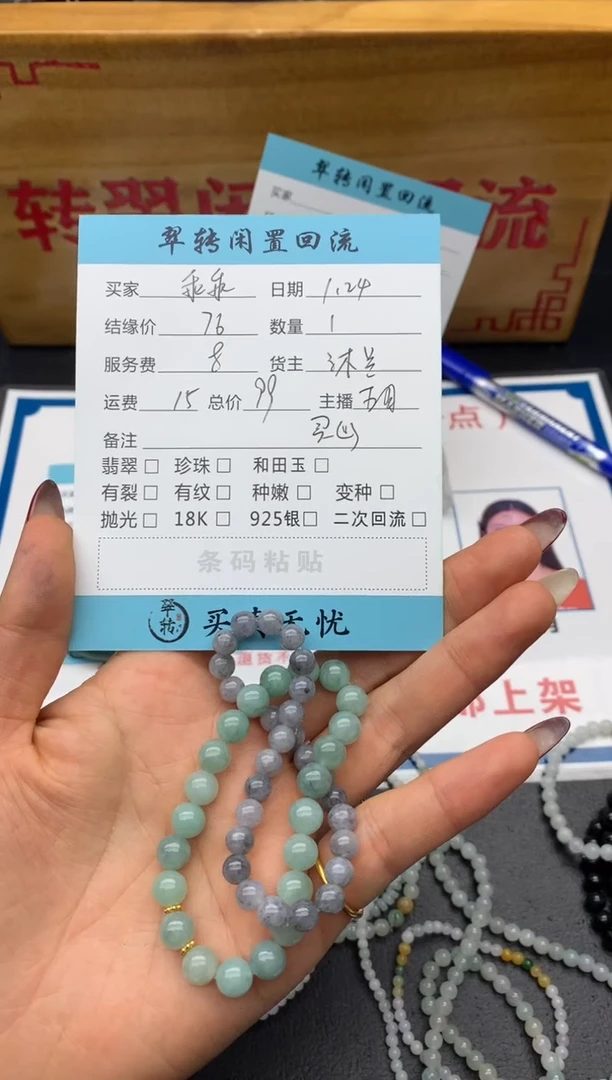 转翠闲 回流
翠转闲置回流
买家
翠转闲置回流
买家 乖乖 日期 1.24
结缘价 76 数量 1
服务费 8 货主 沐兰
运费 15 总价 99 主播
备注
翡翠□ 珍珠□ 和田玉□
有裂□ 有纹□ 种嫩□ 变种□
抛光□ 18K□ 925银□ 二次回流□
条码粘贴
翠转 买 无忧
点
即上架